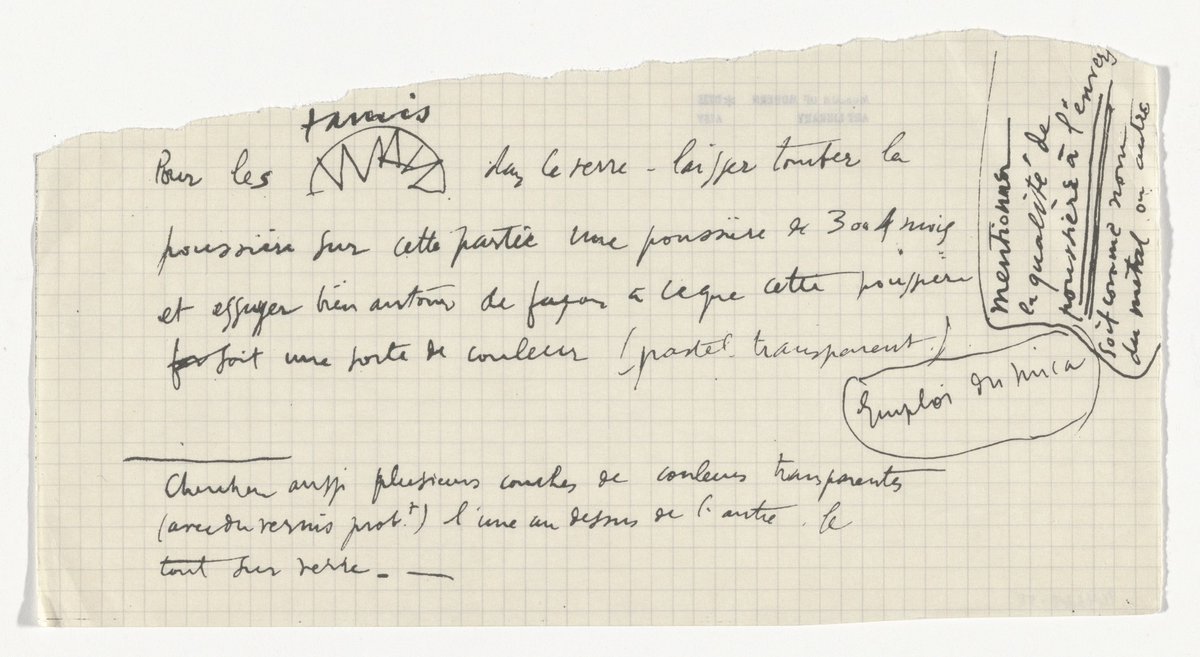 tamis
Pour les dans le verre – laisser tomber la
poussière sur cette partie une poussière de 3 ou 4 mois
et essuyer bien autour de façon à ce que cette poussière
soit une sorte de couleur (pastel transparent)
Emploi du mica
mentionner
la qualité de
poussière à l'envers
soit comme nom
du métal ou autre
Chercher aussi plusieurs couches de couleurs transparentes
(avec du vernis prob.t) l'une au dessus de l'autre. le
tout sur verre. —